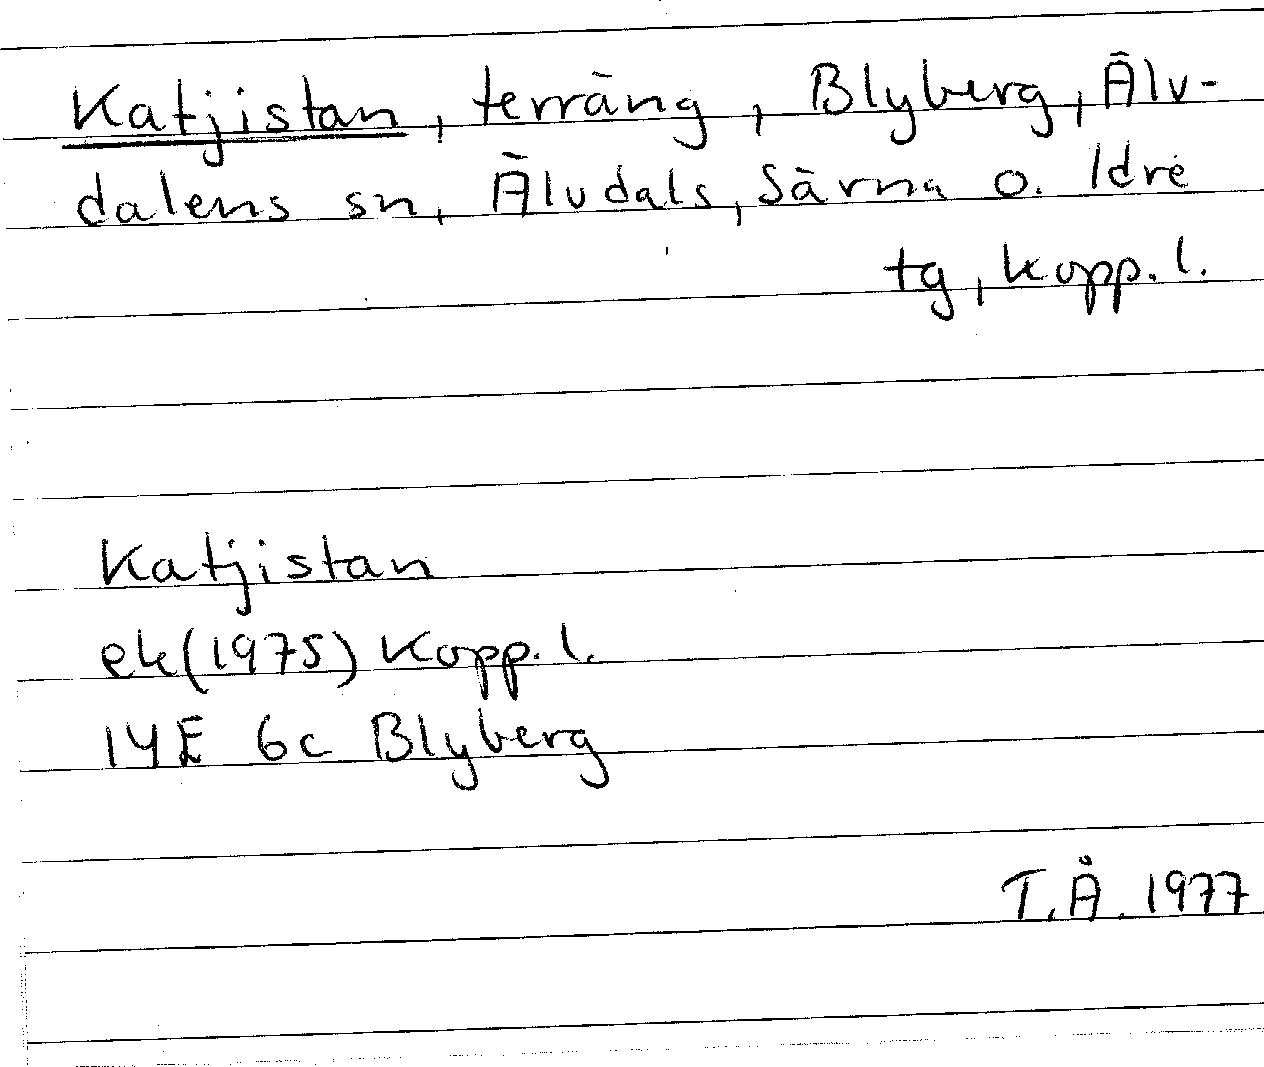 Katjistan, terräng, Blyberg, Älv-
dalens sn, Älvdals, Särna o. Idre
tg, Kopp. l.
Katjistan
ek (1975) Kopp. l.
14E 6c Blyberg
T.Å. 1977